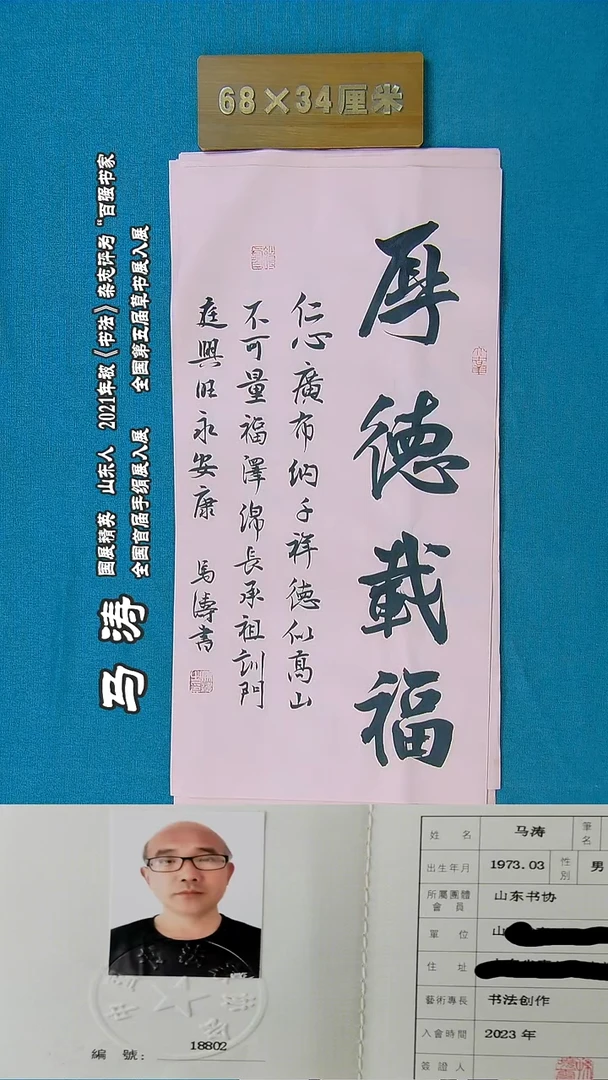 68×34厘米
厚德载福
仁心廣布纳千祥德似高山
不可量福澤绵長承祖訓門
庭興旺永安康 馬濤書
马涛
国展精英 山东人 2021年被《书法》杂志评为“百强书家
全国首届手绢展入展 全国第五届草书展入展
姓名 马涛 筆名
出生年月 1973.03 性別 男
所屬團體會員 山东书协
單位 山
住址
藝術專長 书法创作
入會時間 2023年
簽證人
編號: 18802